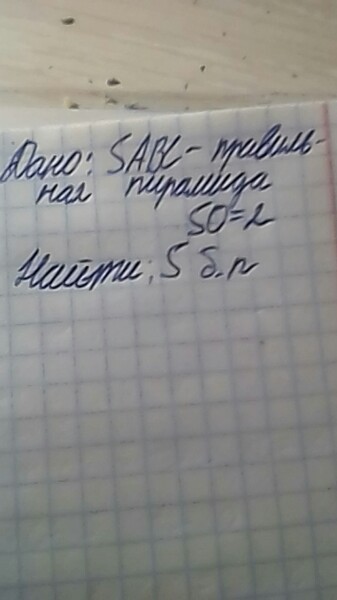 Дано: SABC - правиль-
ная пирамида
SO=2
Найти: S б.п